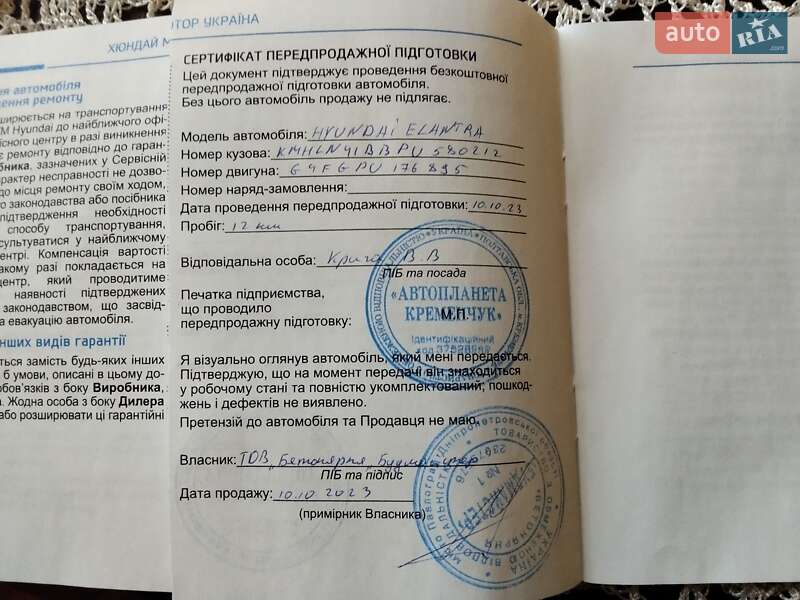 ОТОР УКРАЇНА
ХЮНДАЙ М
auto RIA .com
ня автомобіля
дення ремонту
ширюється на транспортування
М Hyundai до найближчого офі-
існого центру в разі виникнення
є ремонту відповідно до гаран-
бника, зазначених у Сервісній
арактер несправності не дозво-
до місця ремонту своїм ходом,
го законодавства або посібника
підтвердження необхідності
способу транспортування,
сультуватися у найближчому
центрі. Компенсація вартості
акому разі покладається на
центр, який проводитиме
наявності підтверджених
законодавством, що засвід-
а евакуацію автомобіля.
нших видів гарантії
ться замість будь-яких інших
б умови, описані в цьому до-
обов'язків з боку Виробника,
а. Жодна особа з боку Дилера
або розширювати ці гарантійні
СЕРТИФІКАТ ПЕРЕДПРОДАЖНОЇ ПІДГОТОВКИ
Цей документ підтверджує проведення безкоштовної
передпродажної підготовки автомобіля.
Без цього автомобіль продажу не підлягає.
Модель автомобіля: HYUNDAI ELANTRA
Номер кузова: KMHLN41BBPU580212
Номер двигуна: G4FGPU176895
Номер наряд-замовлення:
Дата проведення передпродажної підготовки: 10.10.23
Пробіг: 12 км
Відповідальна особа: В.В
ПІБ та посада
Печатка підприємства,
що проводило
передпродажну підготовку:
М.П.
«АВТОПЛАНЕТА
КРЕМЕНЧУК»
Ідентифікаційний
код
УКРАЇНА
Я візуально оглянув автомобіль, який мені передається.
Підтверджую, що на момент передачі він знаходиться
у робочому стані та повністю укомплектований, пошкод-
жень і дефектів не виявлено.
Претензій до автомобіля та Продавця не маю.
Власник: ТОВ „Бетонярня Будмайстер
ПІБ та підпис
Дата продажу: 10.10.2023
(примірник Власника)
УКРАЇНА